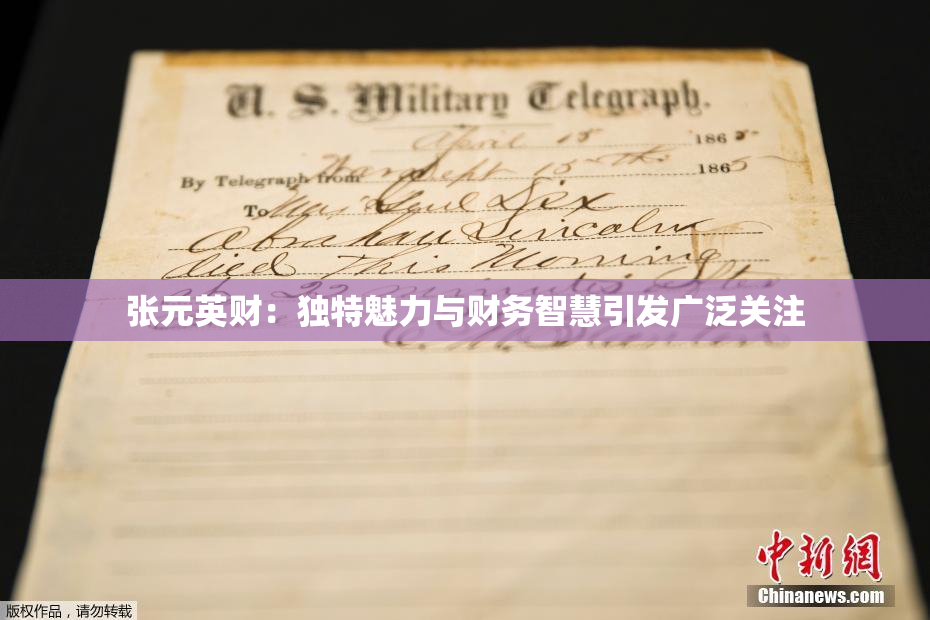 U. S. Military Telegraph.
April 15 1865
By Telegraph from War Dept 15th 1865
To Maj Genl Dix
Abraham Lincoln
died This Morning
at 22 minutes after
张元英财：独特魅力与财务智慧引发广泛关注
E. M. Stanton
中新网
Chinanews.com
版权作品，请勿转载